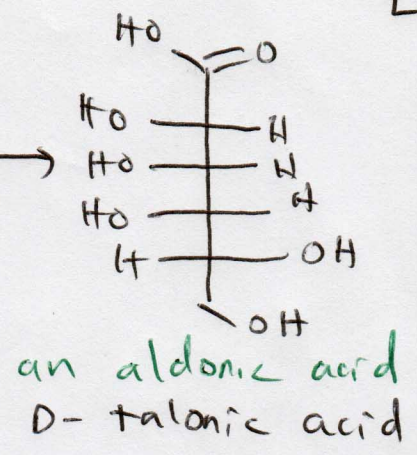 HO
O
HO H
HO H
HO H
H OH
OH
an aldonic acid
D- talonic acid